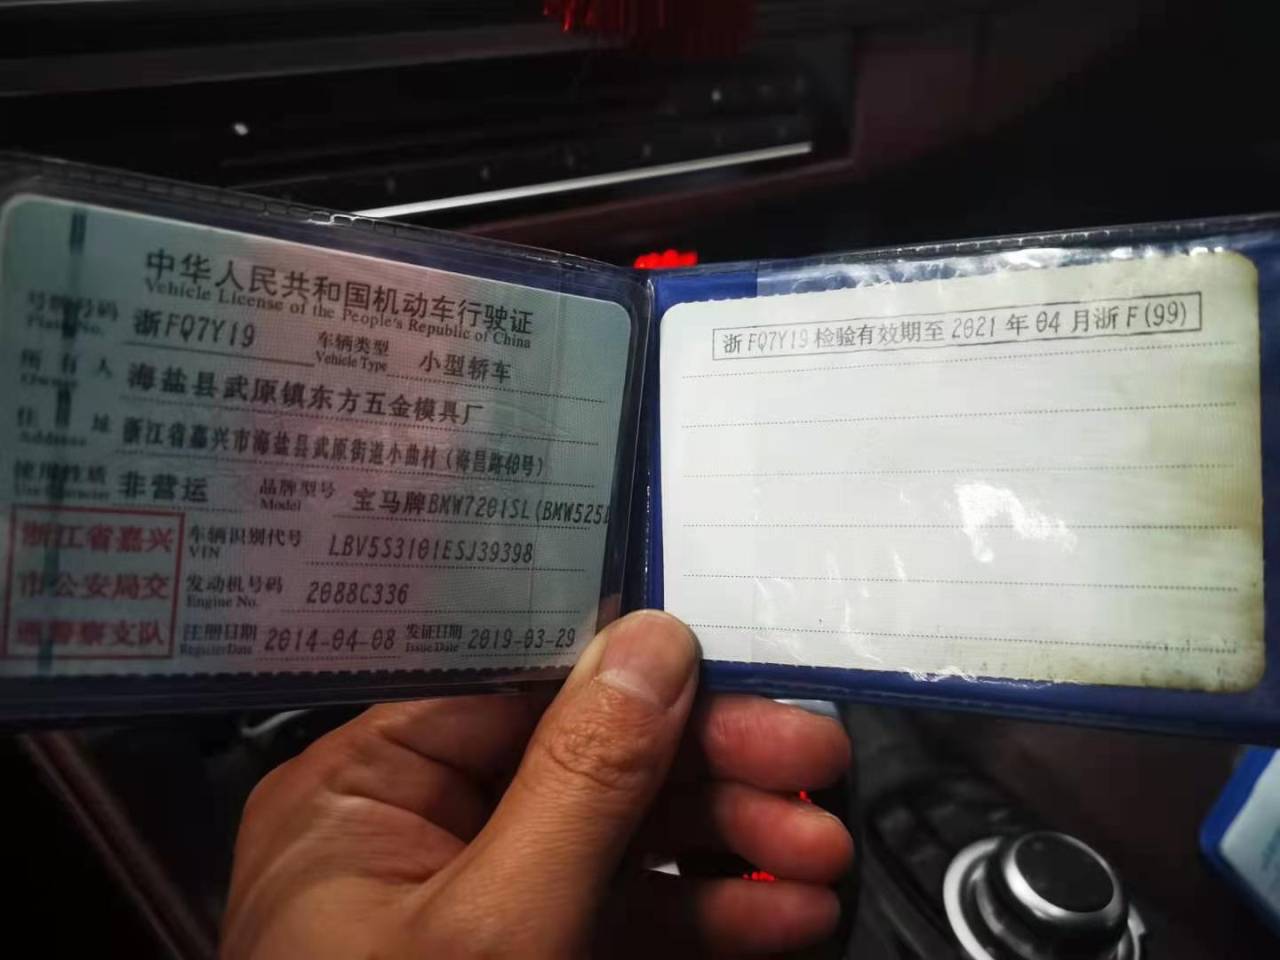 中华人民共和国机动车行驶证
Vehicle License of the People's Republic of China
号牌号码 浙FQ7Y19 车辆类型 小型轿车
Plate No. Vehicle Type
所有人 海盐县武原镇东方五金模具厂
Owner
住址 浙江省嘉兴市海盐县武原街道小曲村(海昌路40号)
Address
使用性质 非营运 品牌型号 宝马牌BMW7201SL(BMW525L
Use Character Model
浙江省嘉兴
市公安局交
通警察支队
车辆识别代号 LBV5S3101ESJ39398
VIN
发动机号码 2088C336
Engine No.
注册日期 2014-04-08 发证日期 2019-03-29
Register Date Issue Date
浙FQ7Y19检验有效期至2021年04月浙F(99)